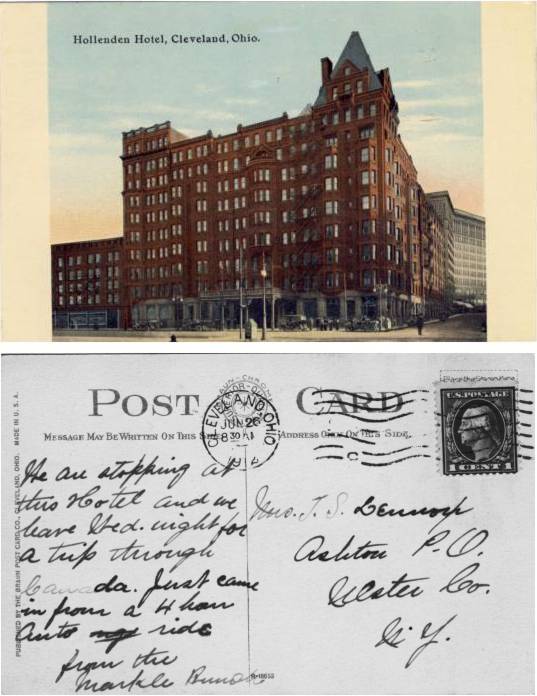 Hollenden Hotel, Cleveland, Ohio.
POST CARD
MESSAGE MAY BE WRITTEN ON THIS SIDE
ADDRESS ONLY ON THIS SIDE.
CLEVELAND, OHIO
JUN 26
8 30 A
191
U.S. POSTAGE
1 CENT 1
PUBLISHED BY THE BRAUN POST CARD CO., CLEVELAND, OHIO. MADE IN U.S.A.
We are stopping at
this Hotel and we
leave Wed. night for
a trip through
Canada. Just came
in from a 4 hour
auto ride
from the
Markle Bunch
Mrs. J. S.
Ashton P.O.
Ulster Co.
N.Y.